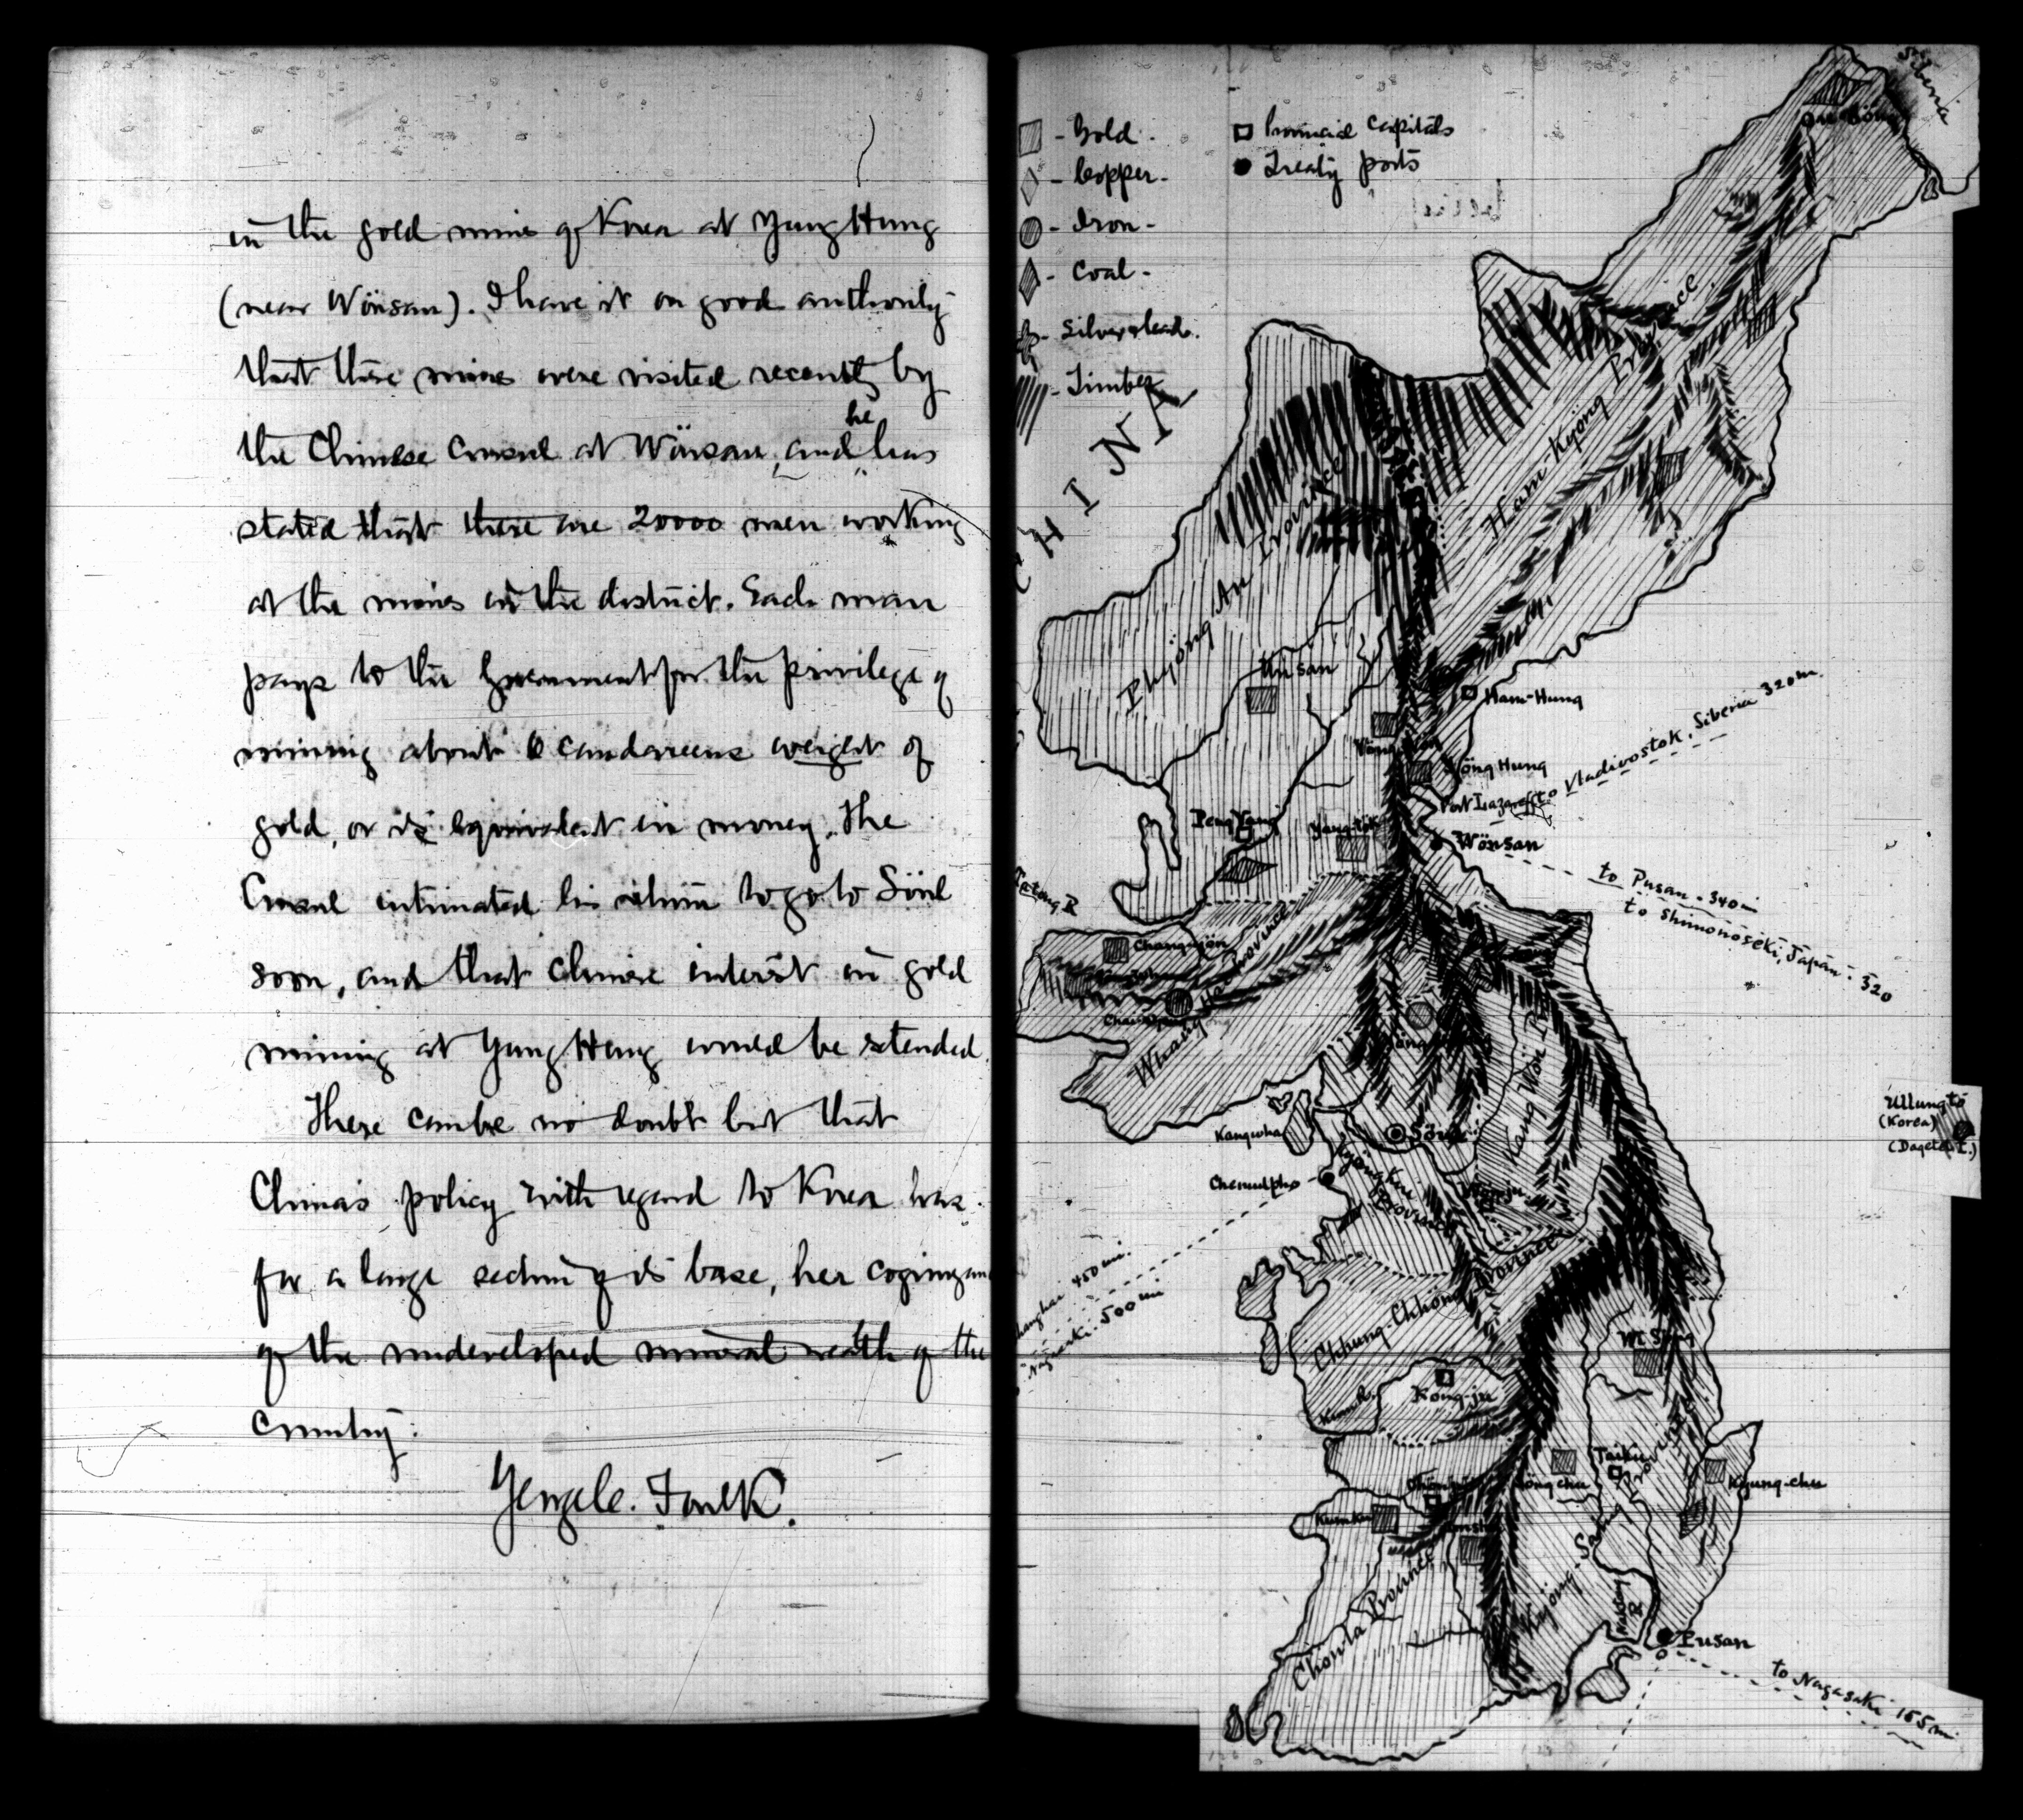 in the gold mine of Korea at Yung Hung
(near Wönsan). I have it on good authority
that these mines were visited recently by
the Chinese Consul at Wönsan, and he has
stated that there are 20000 men working
at the mines in the district. Each man
pays to the Government for the privilege of
mining about 6 candareens weight of
gold, or its equivalent in money. The
Consul intimated his return to go to Söul
soon, and that Chinese interest in gold
mining at Yung Hung would be extended.
There can be no doubt but that
China's policy with regard to Korea has
for a large section of its base, her cognizance
of the undeveloped mineral wealth of the
Country.
George C. Foulk.
- Gold -
- Copper -
- Iron -
- Coal -
- Silver & lead.
- Timber
Provincial Capitals
Treaty ports
CHINA
Siberia
Ham-Kyöng Province
Phyöng An Province
Un san
Ham-Hung
Yöng Hung
Port Lazareff
to Vladivostok, Siberia 320 m.
Wönsan
to Pusan - 340 mi
to Shimonoseki, Japan - 320
Peng Yang
Yang-tök
Tatong R
Chang-yön
Whang Hai Province
Kang Wön
Ullung to
(Korea)
(Dagelet I.)
Kangwha
Söul
Chemulpho
Kyöng Kwi Province
Wön-ju
Shanghai 450 mi.
Nagasaki - 500 mi
Chhung-Chhöng Province
Kong-ju
Taiku
Kyung-chu
Kyöng-Sang Province
Chonla Province
Naktong R
Pusan
to Nagasaki 165 mi